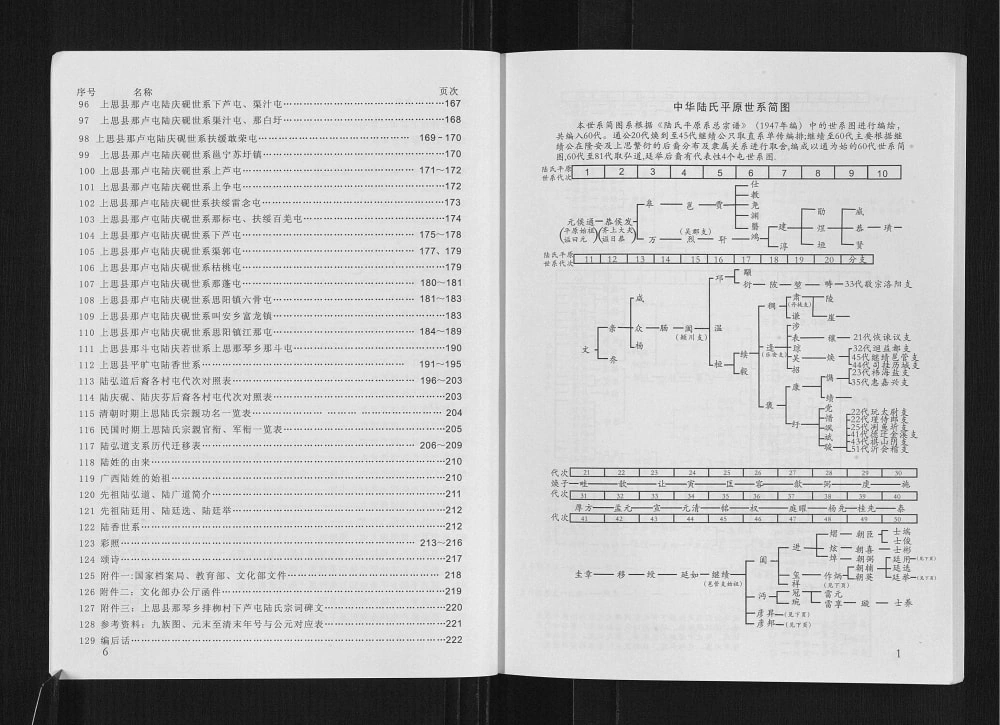 序号 名称 页次
96 上思县那卢屯陆庆砚世系下芦屯、渠汁屯 167
97 上思县那卢屯陆庆砚世系渠汁屯、那白圩 168
98 上思县那卢屯陆庆砚世系扶缓敢荣屯 169-170
99 上思县那卢屯陆庆砚世系邕宁苏圩镇 170
100 上思县那卢屯陆庆砚世系上芦屯 171～172
101 上思县那卢屯陆庆砚世系上争屯 172
102 上思县那卢屯陆庆砚世系扶绥雷念屯 173
103 上思县那卢屯陆庆砚世系那标屯、扶绥百羌屯 174
104 上思县那卢屯陆庆砚世系下芦屯 175～178
105 上思县那卢屯陆庆砚世系渠郭屯 177、179
106 上思县那卢屯陆庆砚世系枯桃屯 179
107 上思县那卢屯陆庆砚世系那蓬屯 180～181
108 上思县那卢屯陆庆砚世系思阳镇六骨屯 181～183
109 上思县那卢屯陆庆砚世系叫安乡富龙镇 183
110 上思县那卢屯陆庆砚世系思阳镇江那屯 184～189
111 上思县那斗屯陆庆若世系上思那琴乡那斗屯 190
112 上思县平旷屯陆香世系 191～195
113 陆弘道后裔各村屯代次对照表 196～203
114 陆庆砚、陆庆芬后裔各村屯代次对照表 203
115 清朝时期上思陆氏宗親功名一览表 204
116 民国时期上思陆氏宗親官衔、军衔一览表 205
117 陆弘道支系历代迁移表 206～209
118 陆姓的由来 210
119 广西陆姓的始祖 210
120 先祖陆弘道、陆广道简介 211
121 先祖陆廷用、陆廷选、陆廷举 212
122 陆香世系 212
123 彩照 213～216
124 颂诗 217
125 附件一:国家档案局、教育部、文化部文件 218
126 附件二：文化部办公厅函件 219
127 附件三：上思县那琴乡排柳村下芦屯陆氏宗词碑文 220
128 参考资料：九族图、元末至清末年号与公元对应表 221
129 编后话 222
6
中华陆氏平原世系简图
本世系简图系根据《陆氏平原系总宗谱》（1947年编）中的世系图进行编绘，
共编入60代。通公20代焕到至45代继绩公只取直系单传编排;继绩至60代主要根据继
绩公在隆安及上思繁衍的后裔分布及隶属关系进行取舍,编成以通为始的60代世系简
图,60代至81代取弘道,廷举后裔有代表性4个屯世系图.
陆氏平原世系代次 1 2 3 4 5 6 7 8 9 10
仕
教
尧
渊
皋 邕 贾
元侯通 恭侯发
(平原始祖谥曰元) (齐上大夫谥曰恭)
(吴郡支)
万 烈 鸿 建 淳
勋 煜 桓
威 恭 贤 璜
陆氏平原世系代次 11 12 13 14 15 16 17 18 19 20 分支
邛 颙 衍 陂 33代敬宗洛阳支
稠 肃 谦 陵 崖
(丹徒支)
文 亲 乔 咸 众 杨 肠 闳
(颍川支)
温 桓 续 毅
逢 褒
(乐安支)
涉 表 琼 吴 招
璀 焕
21代恢谏议支
32代迥益都支
45代继绩邕管支
44代司社历城支
康 纡 惕 绩
23代祎海盐支
35代惠嘉兴支
党 惜 飒 斌 骏
22代玩太尉支
22代瑾侍郎支
25代渊鱼圻支
41代德迁金溪支
43代祺山阴支
51代沂会稽支
代次 21 22 23 24 25 26 27 28 29 30
焕子 畦 歆 让 寅 匡 客 歆 弼 虔 施
代次 31 32 33 34 35 36 37 38 39 40
厚方 孟元 宣 元清 铭 权 庭曜 杨先 桂先 泰
代次 41 42 43 44 45 46 47 48 49 50
圭章 移 绞 延如 继绩
(邕管支始祖)
闺 沔 进 玺 祥 熠 炫 焯
朝臣 朝喜 朝弼 士端 士俊 士彬
作炳 朝辅 朝英
(见下页)
廷用 (见下页)
廷选
廷举 (见下页)
冠 琬 雷元 雷享 璇 士泰
彦昇 (见下页)
彦邦 (见下页)
1